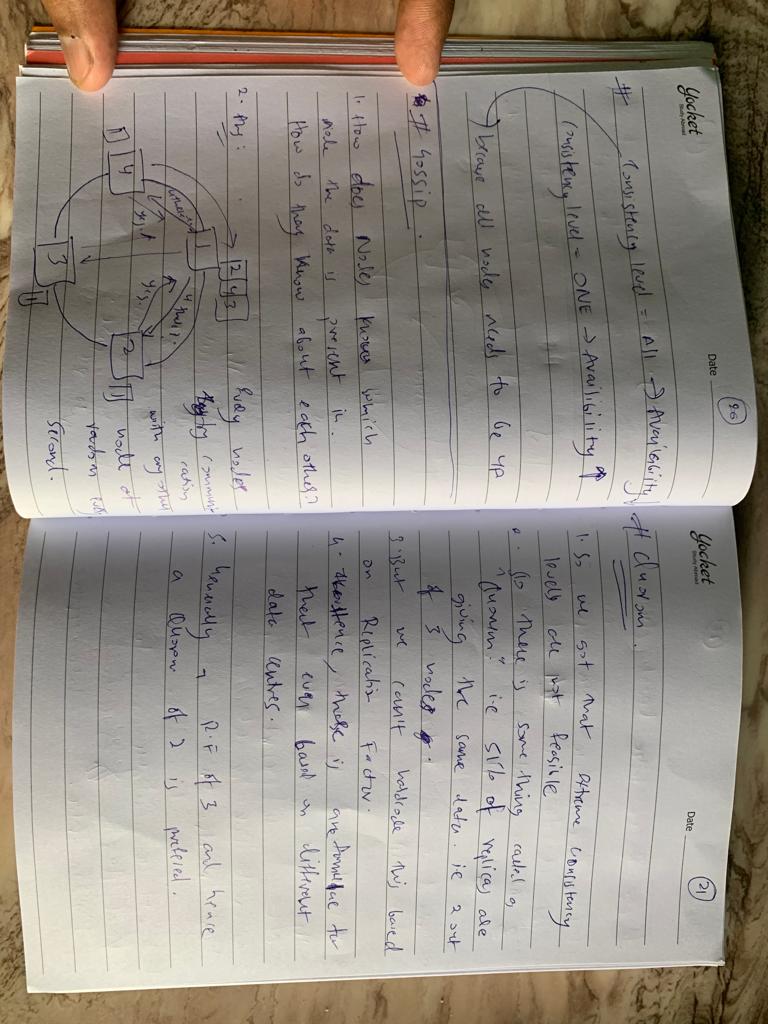 20
yocket
Study Abroad
Date
# Consistency level = All → Availability ↓
Consistency level = ONE → Availibility ↑
because all nodes needs to be up
# Gossip.
1. How does Nodes knows which
node the data is present in.
How do they know about each other?
2. Ans:
2 4 3
Every nodes
try communi
cation
with any other
node at
random every
second.
1
u there?
yes.
u there?
yes.
4
1
2
1
3
1
21
yocket
Study Abroad
Date
# Quorom.
1. So we got that extreme consistency
levels are not feasible
2. So there is some thing called as
"Quorum" i.e 51% of replicas are
giving the same data. i.e 2 out
of 3 nodes.
3. But we can't hardcode this based
on Replication Factor.
4. Hence, there is are formulae for
that even based on different
data centres.
5. Generally → R.F of 3 and hence
a Quorom of 2 is prefered.